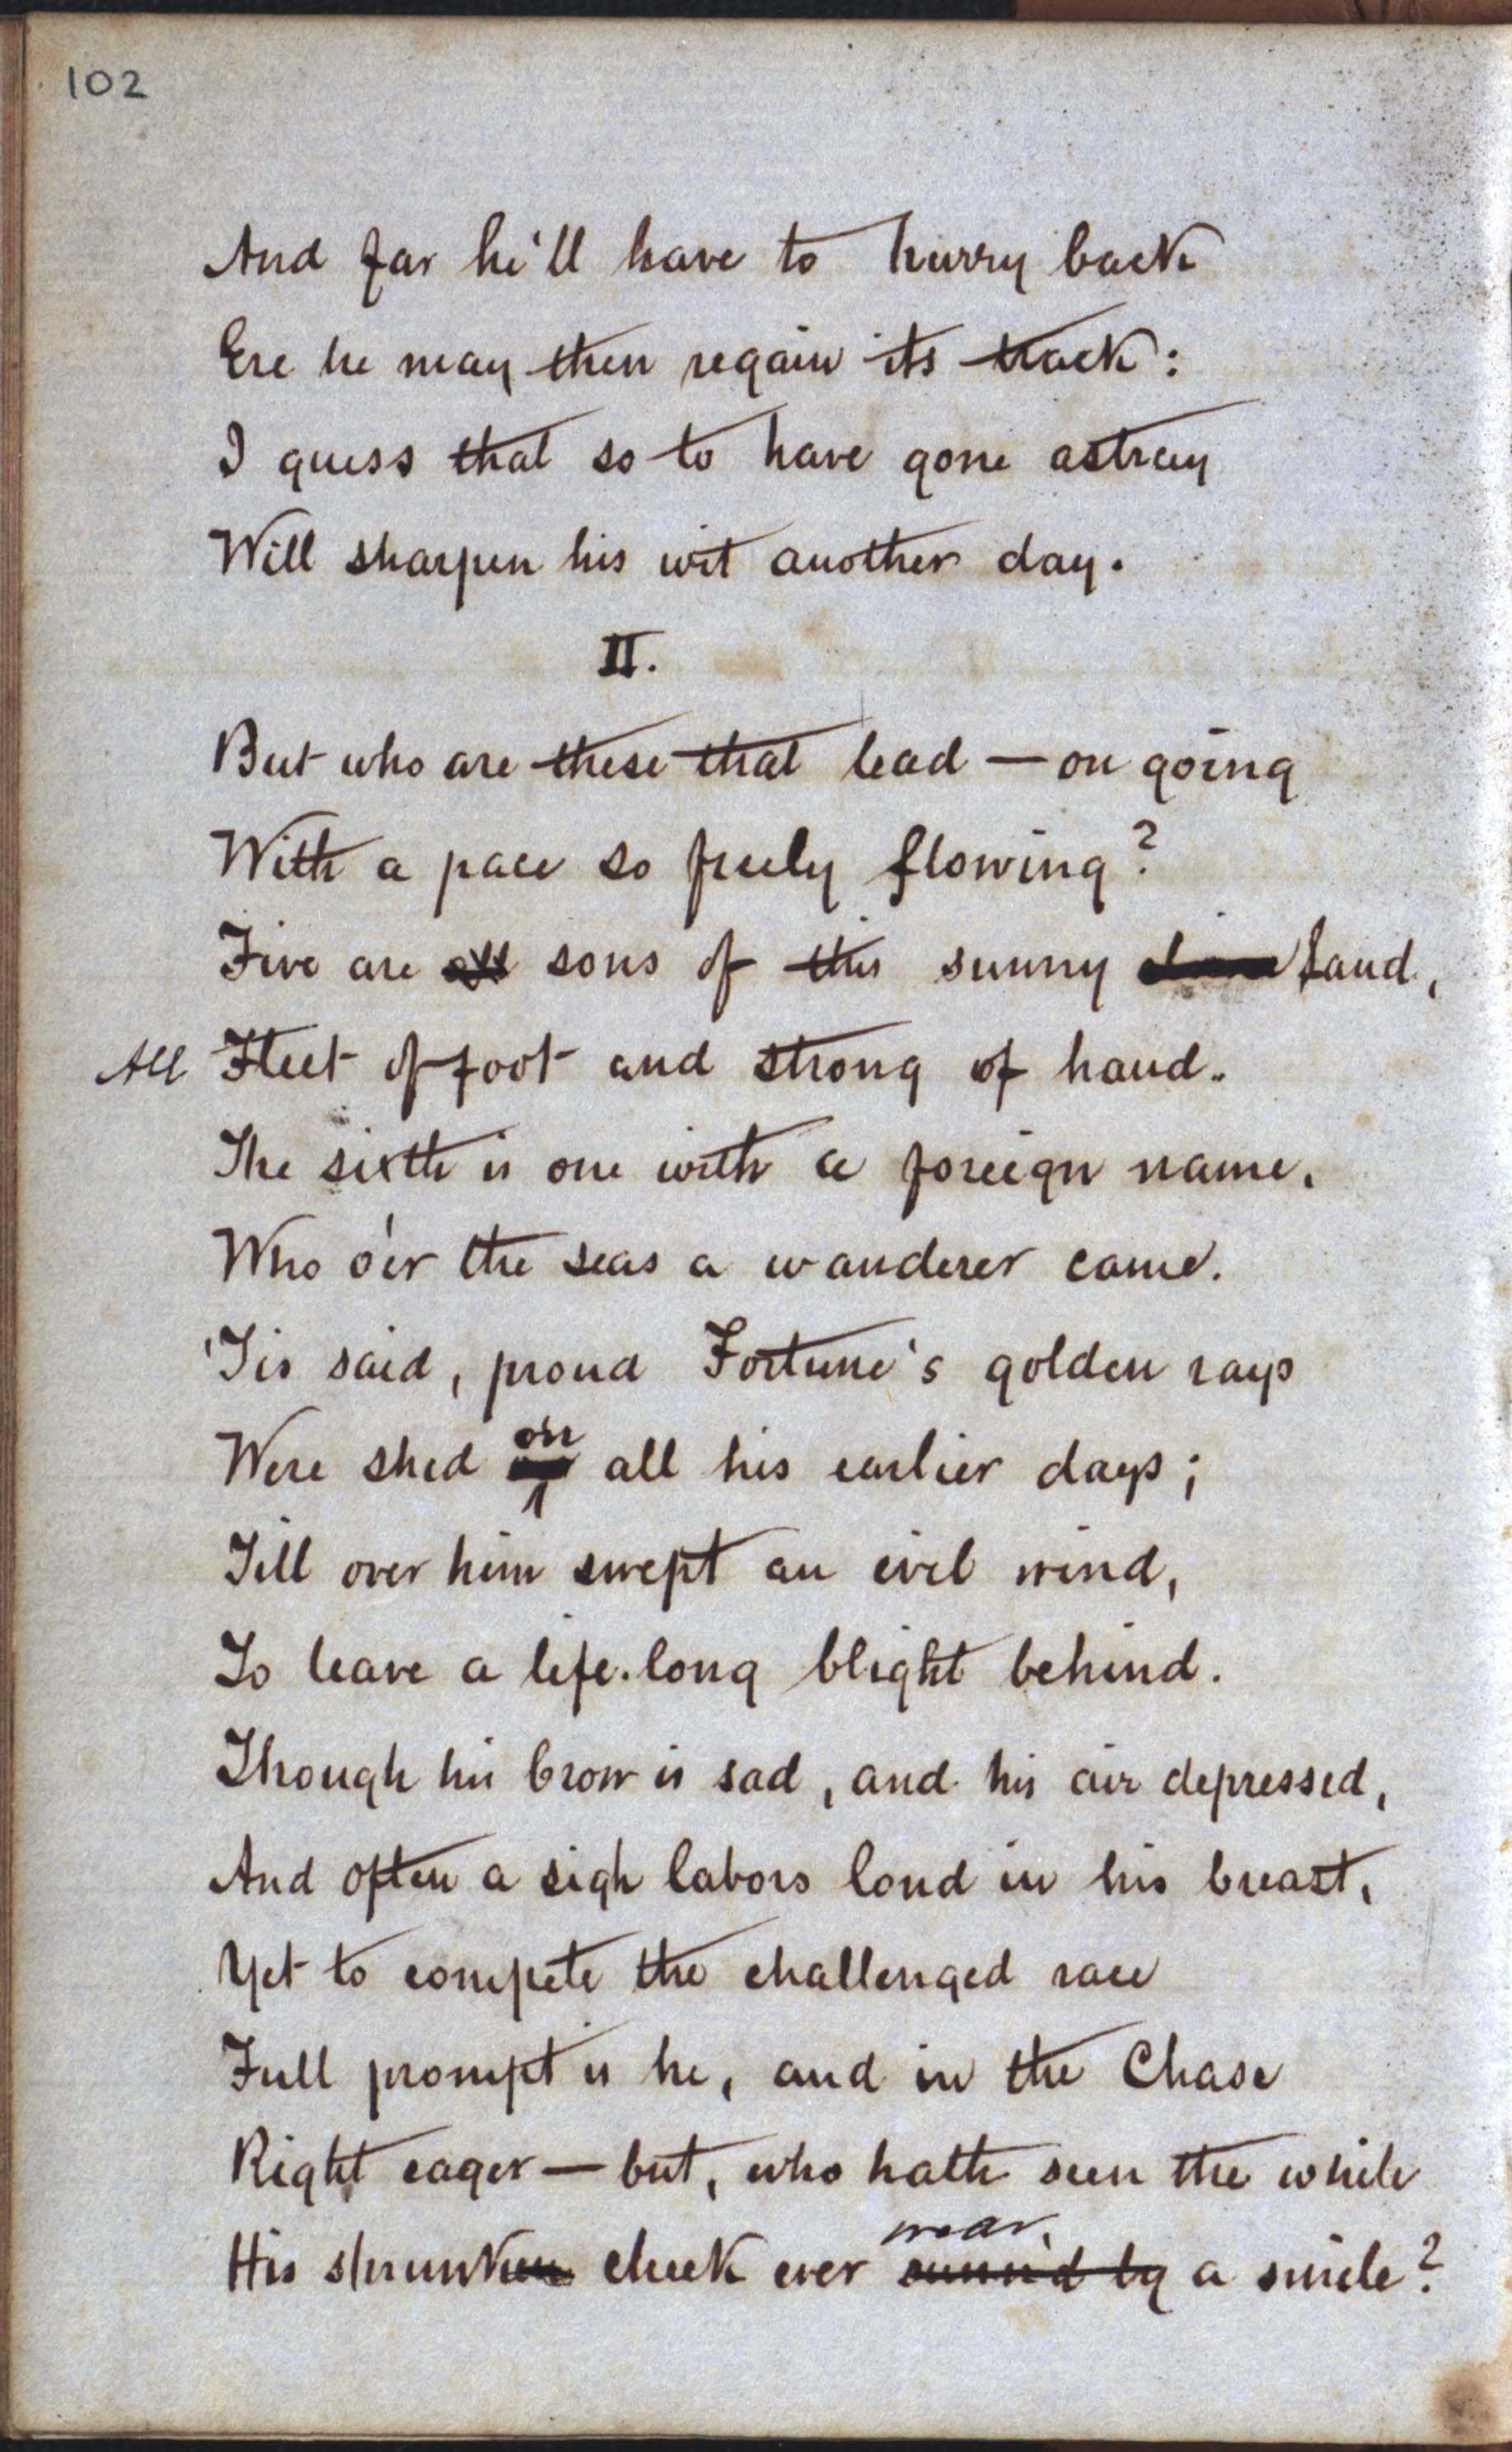 102
And far he'll have to hurry back
Ere he may then regain its track:
I guess that so to have gone astray
Will sharpen his wit another day.
II.
But who are these that lead — on going
With a pace so freely flowing?
Five are all sons of this sunny land,
All Fleet of foot and strong of hand.
The sixth is one with a foreign name,
Who o'er the seas a wanderer came.
'Tis said, proud Fortune's golden rays
Were shed on all his earlier days;
Till over him swept an evil wind,
To leave a life-long blight behind.
Though his brow is sad, and his air depressed,
And often a sigh labors loud in his breast,
Yet to compete the challenged race
Full prompt is he, and in the Chase
Right eager — but, who hath seen the while
wear
His shrunken cheek ever sunn'd by a smile?